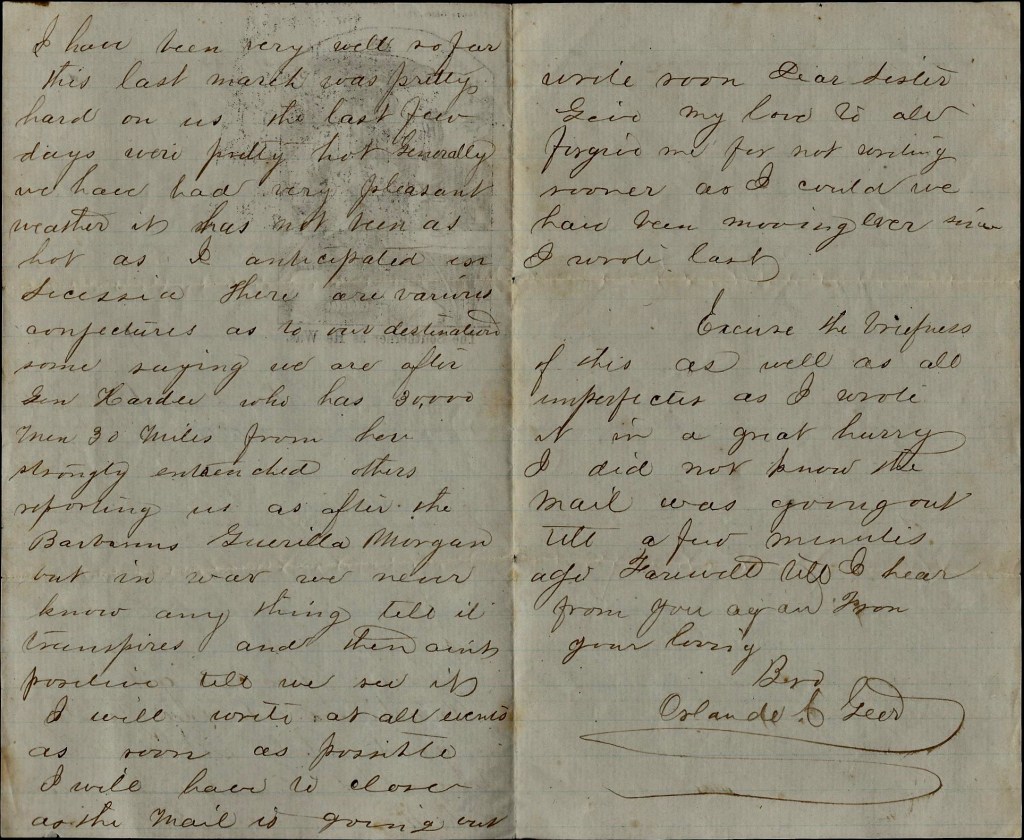 I have been very well so far
this last march was pretty
hard on us the last few
days were pretty hot Generally
we have had very pleasant
weather it has not been as
hot as I anticipated in
Secessia There are various
conjectures as to our destination
some saying we are after
Gen Hardee who has 30,000
Men 30 Miles from here
strongly entrenched others
reporting us as after the
Barbarous Guerilla Morgan
but in war we never
know any thing till it
transpires and then aint
positive till we see it
I will write at all events
as soon as possible
I will have to close
as the Mail is going out
write soon Dear Sister
Give my love to all
forgive me for not writing
sooner as I could we
have been moving ever since
I wrote last
Excuse the briefness
of this as well as all
imperfectes as I wrote
it in a great hurry
I did not know the
Mail was going out
till a few minutes
ago Farewell till I hear
from you again From
your loving
Bro
Orlando C Geer